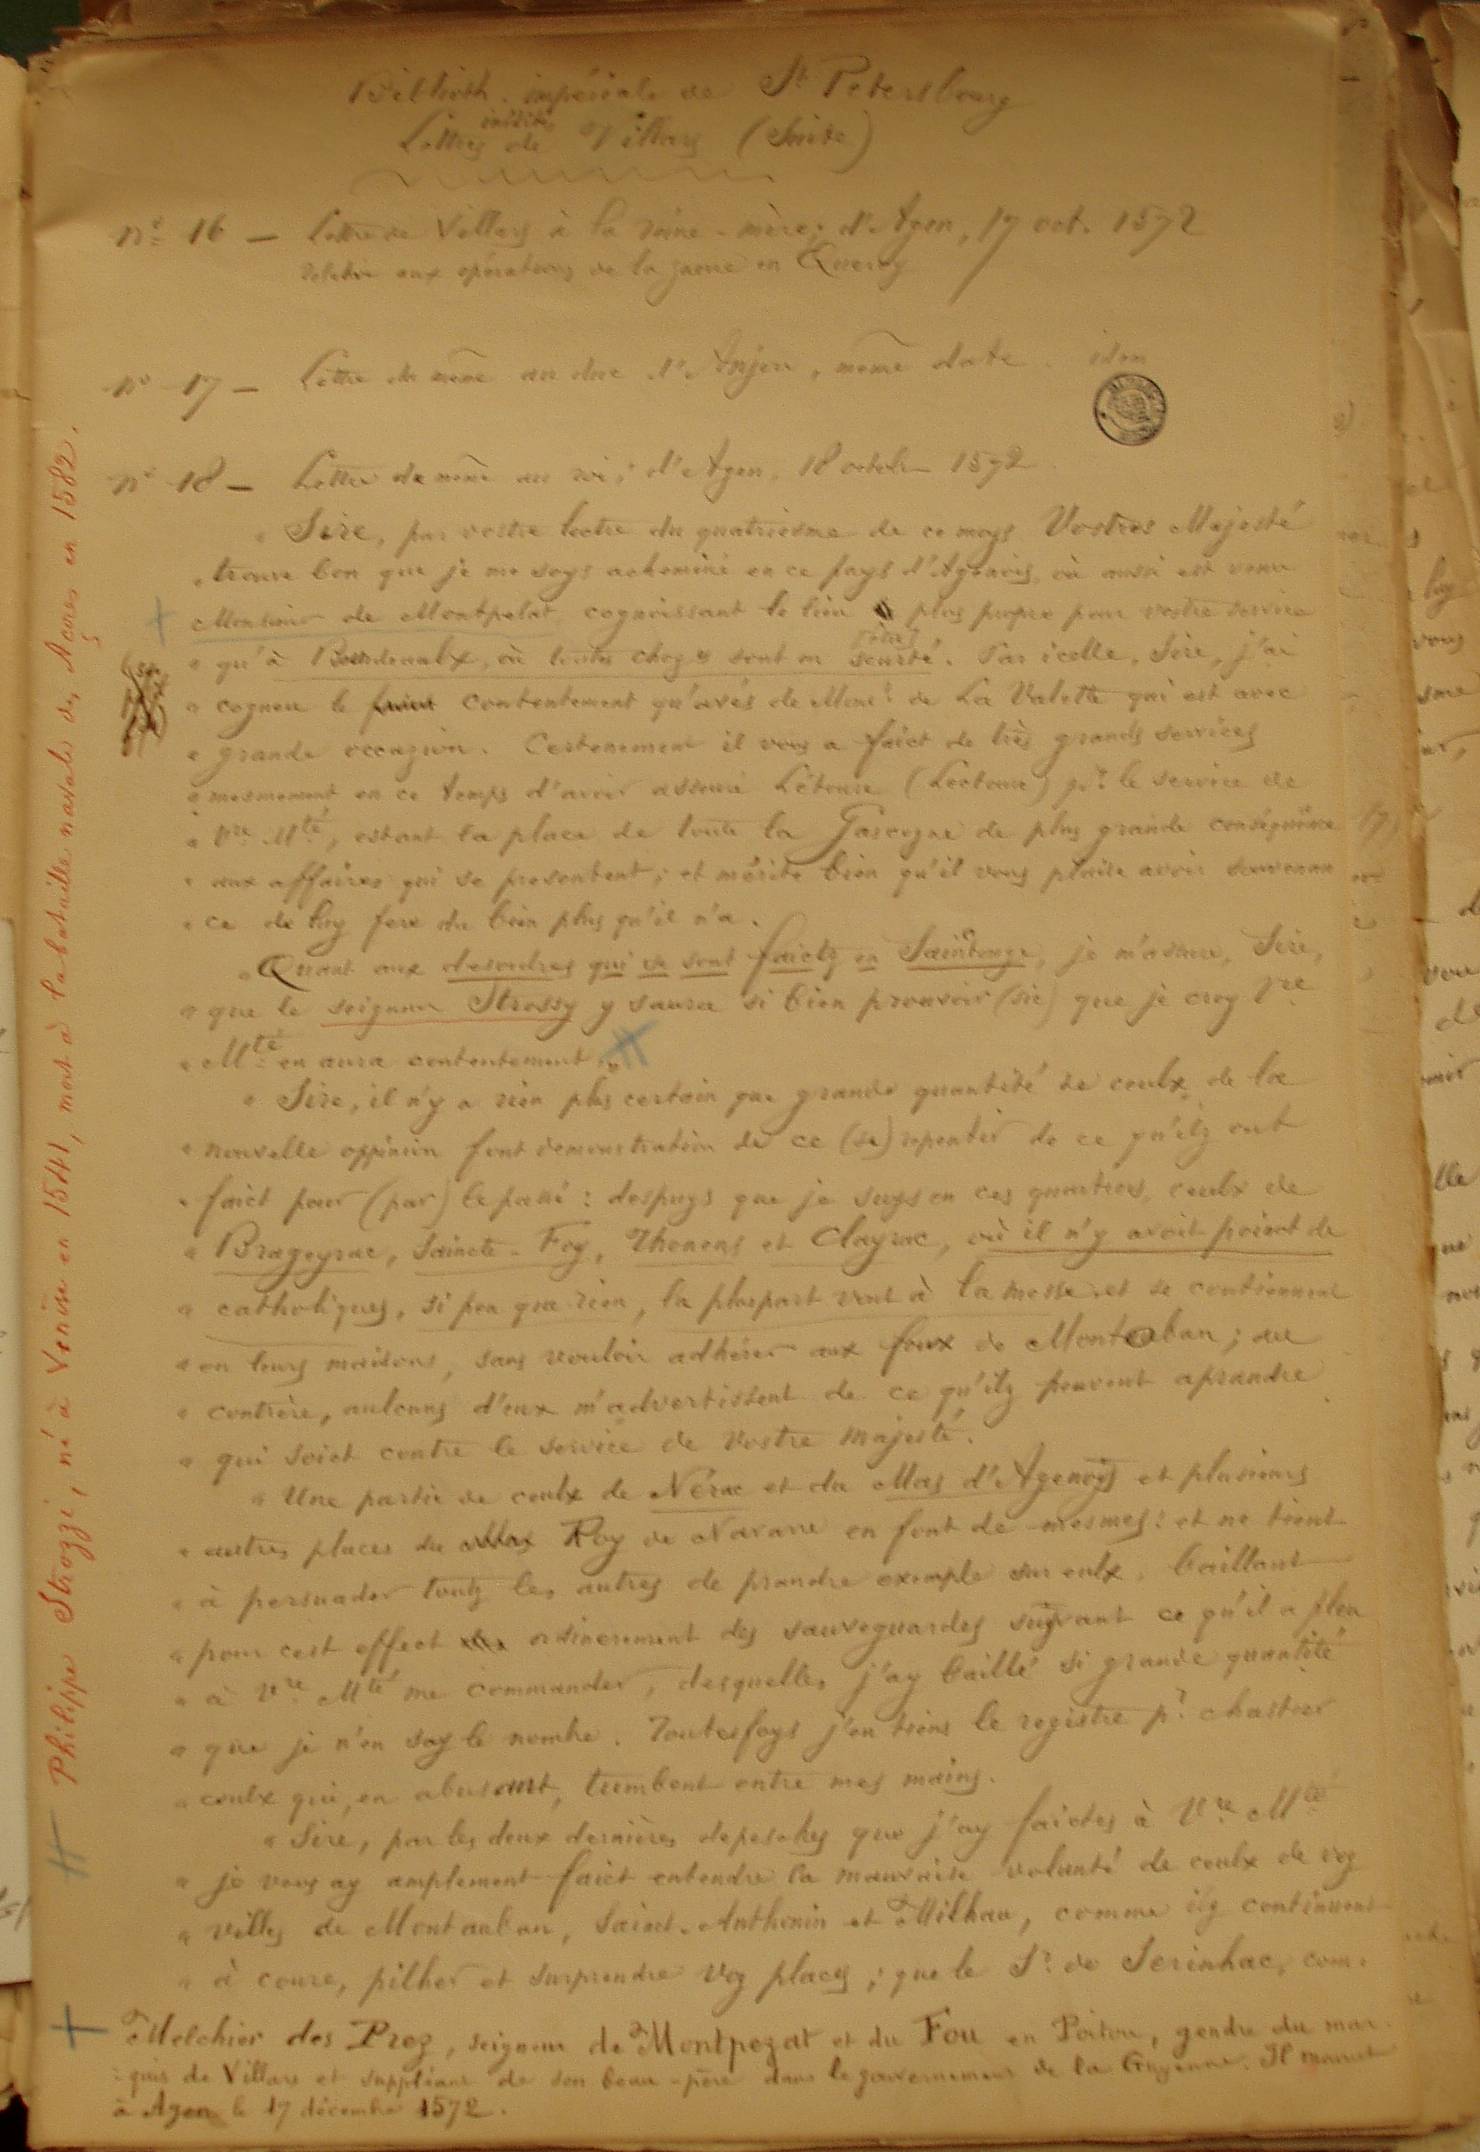 Biblioth. impériale de St Petersbourg
Lettres inédites de Villars (Suite)
N° 16 — Lettre de Villars à la reine-mère; d'Agen, 17 oct. 1572
relative aux opérations de la guerre en Quercy
N° 17 — Lettre du même au duc d'Anjou, même date. idem
N° 18 — Lettre du même au roi; d'Agen, 18 octobre 1572
« Sire, par vostre lectre du quatriesme de ce moys Vostres Majesté
« trouve bon que je me soys acheminé en ce pays d'Agenois, où aussi est venu
Monsieur de Montpezat, cognoissant le lieu plus propre pour vostre service
« qu'à Bourdeaulx, où toutes choses sont en seurté. Par icelle, Sire, j'ai
« cogneu le contentement qu'avés de Monsr de La Valette qui est avec
« grande occazion. Certenement il vous a faict de très grands services
« mesmement en ce temps d'avoir asseuré Létoure (Lectoure) pr le service de
« Vre Mté, estant la place de toute la Gascogne de plus grande conséquence
« aux affaires qui se presentent; et mérite bien qu'il vous plaise avoir souvenan
« ce de luy fere du bien plus qu'il n'a.
« Quant aux desordres qui se sont faictz en Sainctonge, je m'asseure, Sire,
« que le seigneur Strossy y saura si bien prouvoir (sic) que je croy Vre
« Mté en aura contentement. »
« Sire, il n'y a rien plus certain que grande quantité de ceulx de la
« nouvelle oppinion font demonstration de ce (se) repentir de ce qu'ilz ont
« faict pour (par) le passé: despuys que je suys en ces quartiers, ceulx de
« Brageyrac, Saincte-Foy, Thonens et Clayrac, où il n'y avoit poinct de
« catholiques, si peu que rien, la pluspart vont à la messe et se contiennent
« en leurs maisons, sans vouloir adhérer aux foux de Montauban; au
« contrère, aulcuns d'eux m'advertissent de ce qu'ilz peuvent aprandre
« qui soict contre le service de Vostre Majesté.
« Une partie de ceulx de Nérac et du Mas d'Agenoys et plusieurs
« autres places du Roy de Navarre en font de mesmes: et ne tient
« à persuader toutz les autres de prandre exemple sur eulx, baillant
« pour cest effect ordinerement des sauveguardes suyvant ce qu'il a pleu
« à Vre Mté me commander, desquelles j'ay baillé si grande quantité
« que je n'en say le nombre. Toutesfoys j'en tiens le registre pr chastier
« ceulx qui, en abusant, tumbent entre mes mains.
« Sire, par les deux dernières depesches que j'ay faictes à Vre Mté
« je vous ay amplement faict entendre la mauvaise volunté de ceulx de voz
« villes de Montauban, Sainct-Anthonin et Milhau, comme ilz continuent
« à courre, pilher et surprendre voz places; que le Sr de Serinhac, com-
+ Melchior des Prez, seigneur de Montpezat et du Fou en Poitou, gendre du mar-
quis de Villars et suppléant de son beau-père dans le gouvernement de la Guyenne. Il mourut
à Agen le 17 décembre 1572.
# Philippe Strozzi, né à Venise en 1541, mort à la bataille navale des Açores en 1582.